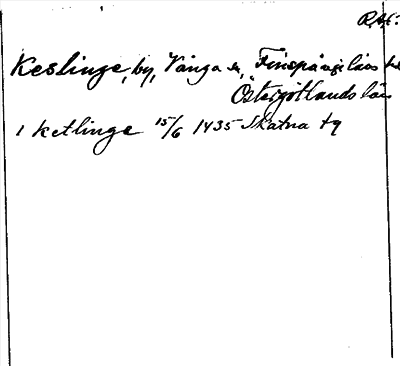 RA6:
Keslinge, by, Vånga sn, Finspånga läns
Östergötlands län
i ketlinge 15/6 1435 Skatna